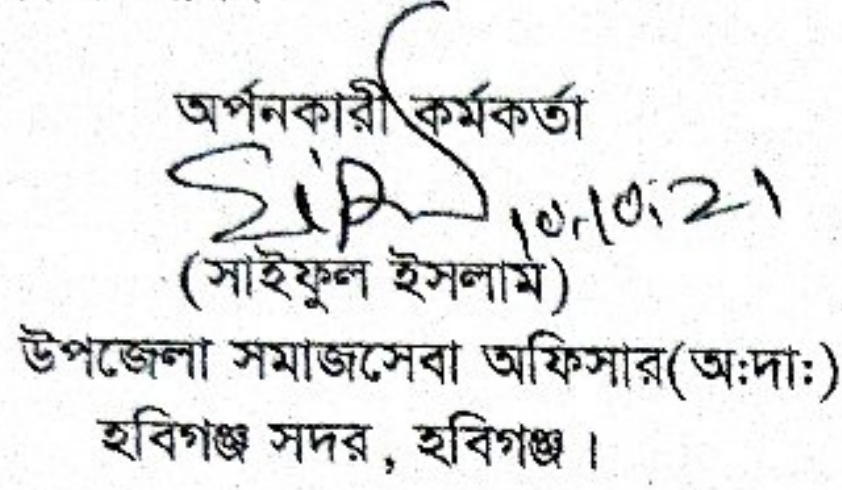 অর্পনকারী কর্মকর্তা
10.10.21
(সাইফুল ইসলাম)
উপজেলা সমাজসেবা অফিসার(অ:দা:)
হবিগঞ্জ সদর, হবিগঞ্জ।